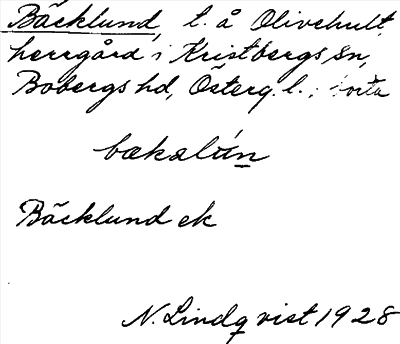 Bäcklund, l. å Olivehult,
herrgård i Kristbergs sn,
Bobergs hd, Österg. l.; borta
bækalún
Bäcklund ek
N. Lindqvist 1928